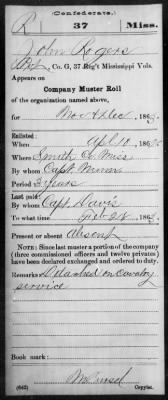 (Confederate.)
R 37 Miss.
John Rogers
Pvt, Co. G, 37 Reg't Mississippi Vols.
Appears on
Company Muster Roll
of the organization named above,
for Nov & Dec, 186
Enlisted:
When Apl 10, 186
Where Smith Co Miss
By whom Capt
Period 3 years
Last paid:
By whom Capt Davis
To what time Feb 28, 186
Present or absent Absent
NOTE: Since last muster a portion of the company
(three commissioned officers and twelve privates)
have been declared exchanged and ordered to duty.
Remarks: Detached on Cavalry
service
Book mark:
(642)
Copyist.